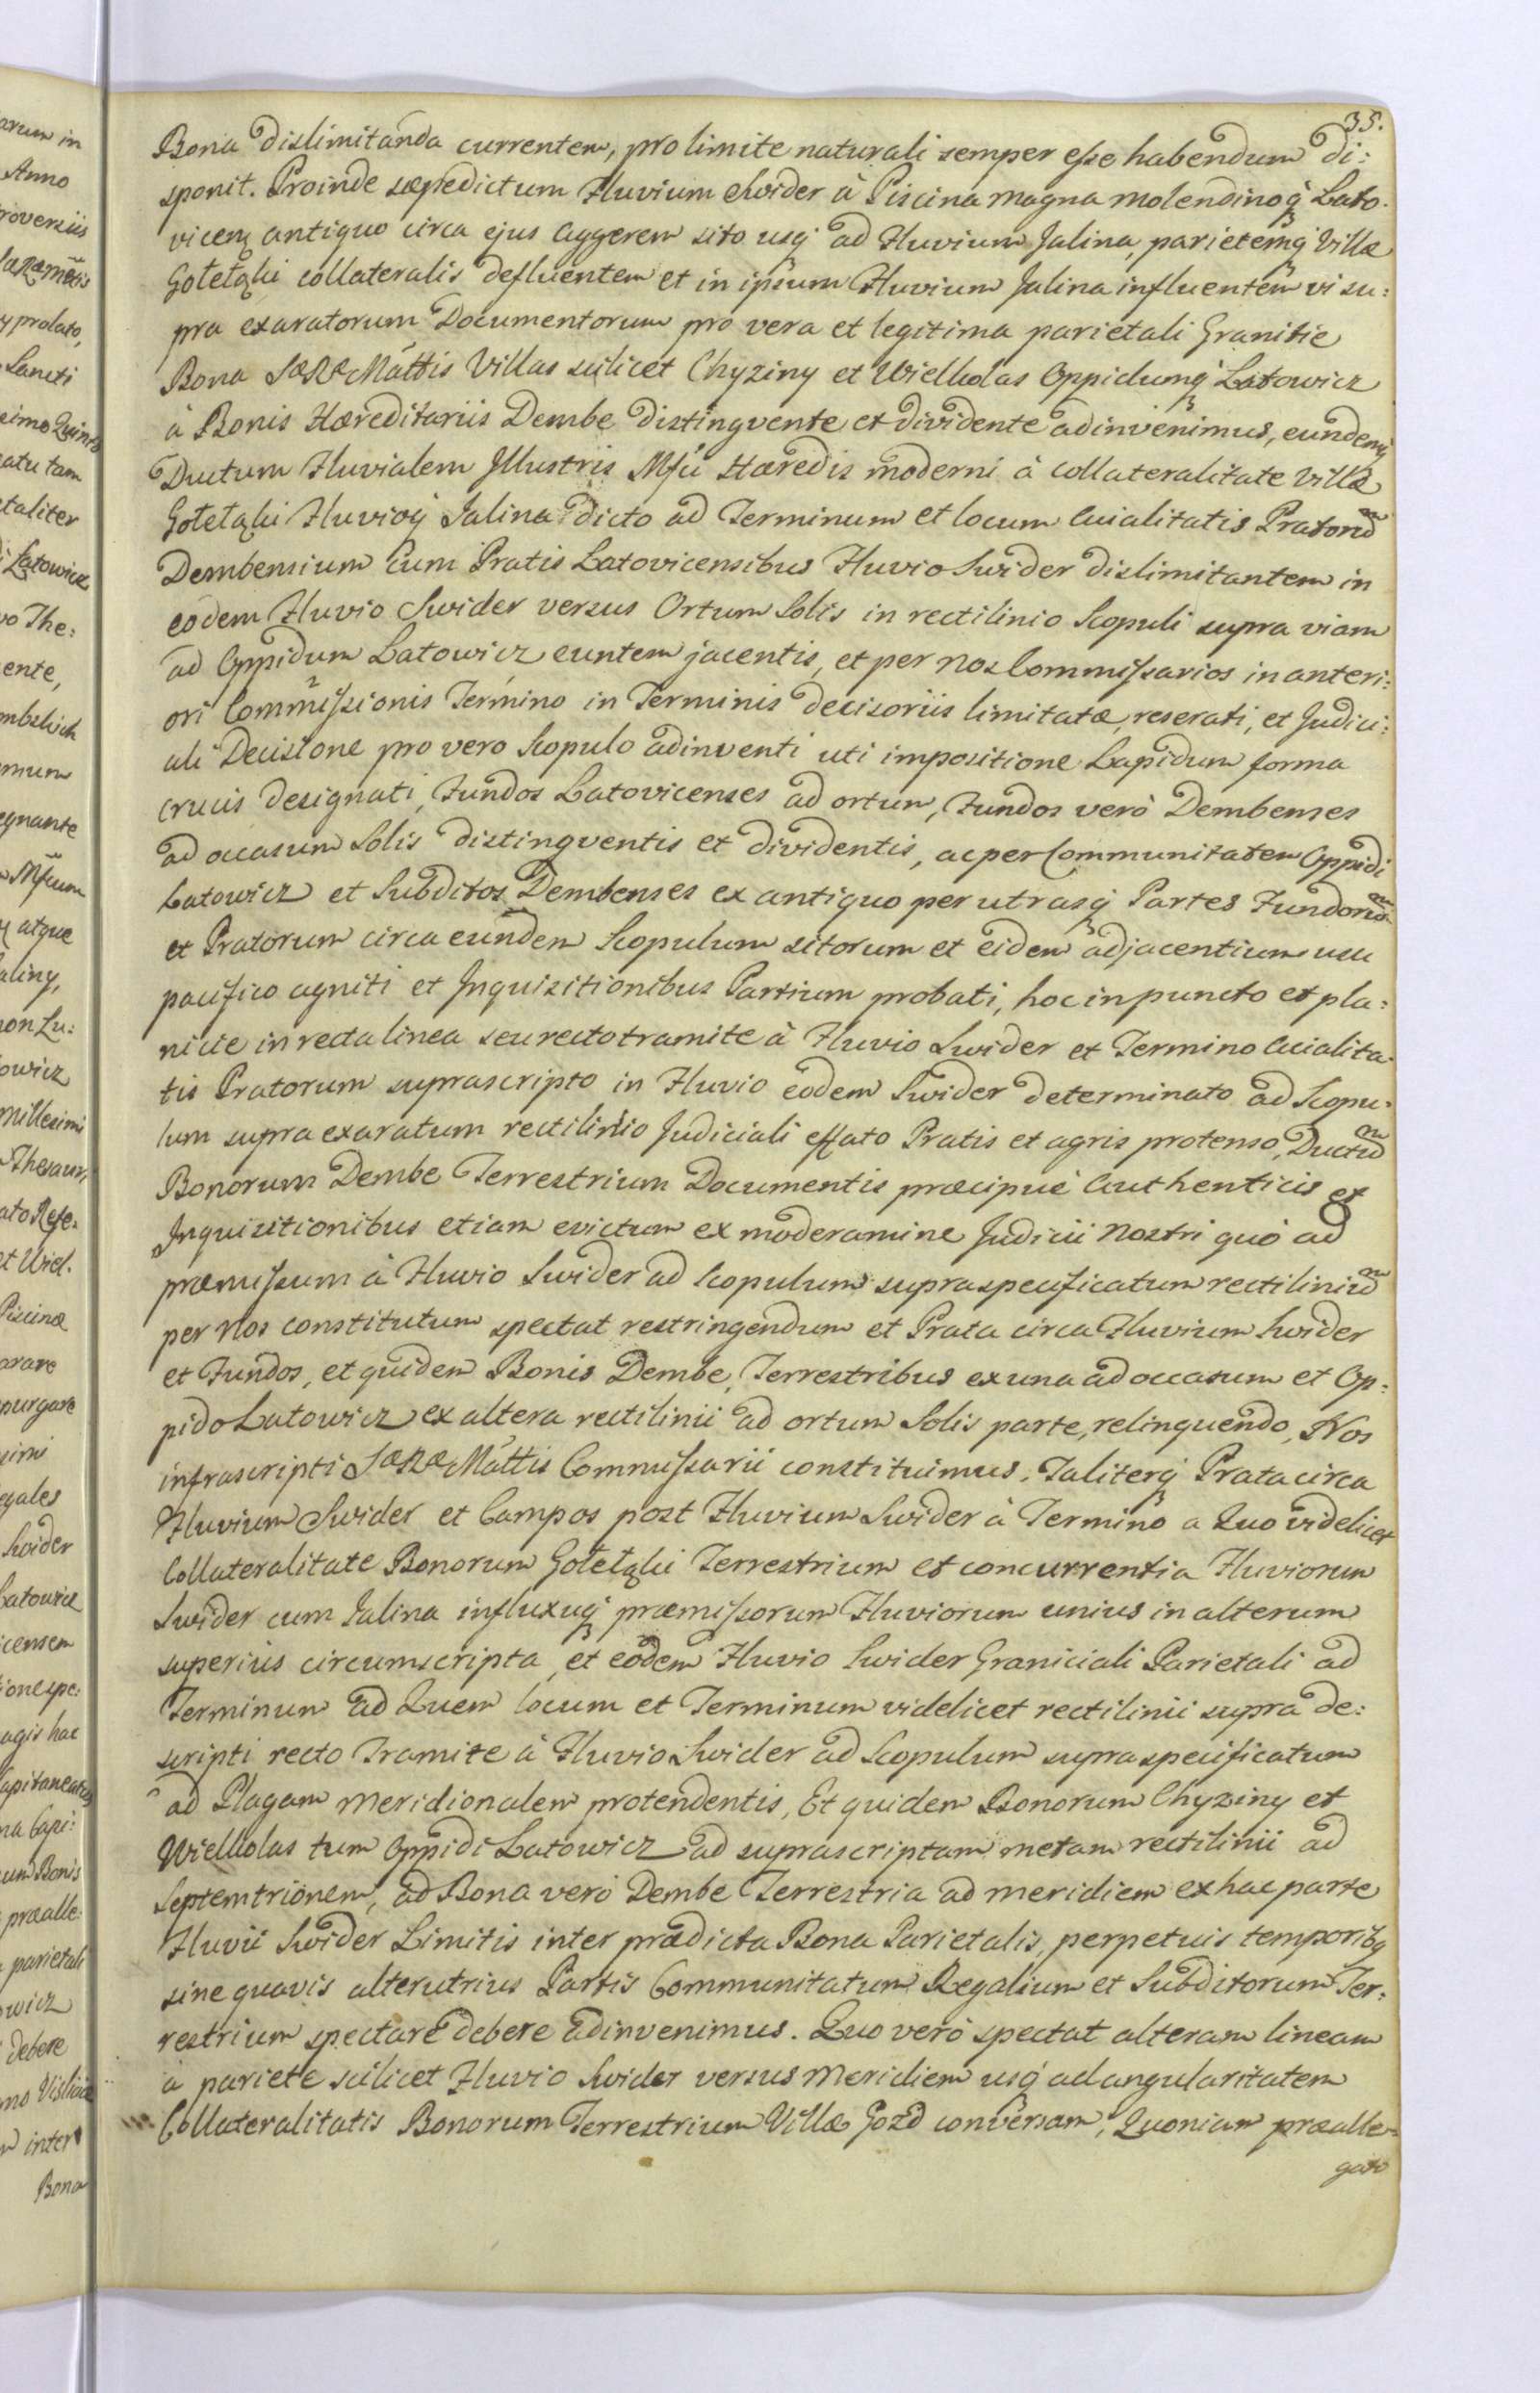 35.
Bona dislimitanda currentem, pro limite naturali semper esse habendum di:
sponit. Proinde sæpedictum Fluvium Swider à Piscina magna molendinoq́ Lato-
vicen antiquo circa ejus aggerem sito usq́ ad Fluvium Jalina, parietemq́ Villæ
Gołełąki collateralis defluentem et in ipsum Fluvium Jalina influentem vi su:
pra exaratorum Documentorum pro vera et legitima parietali Granitie
Bona SæRæMāttis Villas scilicet Chyziny et Wielholas Oppidumq́ Latowicz
à Bonis Hæreditariis Dembe distingvente et dividente adinvenimus, eundemq́
Ductum Fluvialem Jllustris Mfci Hæredis moderni à collateralitate Villæ
Gołełąki Fluvioq́ Jalina dicto ad Terminum et locum Cuialitatis Pratorum
Dembensium cum Pratis Latovicensibus Fluvio Swider dislimitantem in
eodem Fluvio Swider versus Ortum Solis in rectilinio Scopuli supra viam
ad Oppidum Latowicz euntem jacentis, et per nos Commissarios in anteri:
ori Commissionis Termino in Terminis decisoriis limitatæ, reserati, et Judici:
ali Decisione pro vero Scopulo adinventi uti impositione Lapidum forma
crucis designati, Fundos Latovicenses ad ortum, Fundos verò Dembenses
ad occasum Solis distingventis et dividentis, ac per Communitatem Oppidi
Latowicz et Subditos Dembenses ex antiquo per utrasq́ Partes Fundorum
et Pratorum circa eundem Scopulum sitorum et eidem adjacentium usu
pacifico agniti et Jnquisitionibus Partium probati, hoc in puncto et pla:
nicie in recta linea seu recto tramite à Fluvio Swider et Termino Cuialita-
tis Pratorum suprascripto in Fluvio eodem Swider determinato ad Scopu-
lum supra exaratum rectilinio Judiciali effato Pratis et agris protenso, Ductum
Bonorum Dembe Terrestrium Documentis præcipuè Authenticis et
Jnquisitionibus etiam evictum ex moderamine Judicii nostri quò ad
præmissum à Fluvio Swider ad Scopulum supraspecificatum rectilinium
per nos constitutum spectat restringendum et Prata circa Fluvium Swider
et Fundos, et quidem Bonis Dembe, Terrestribus ex una ad occasum et Op:
pido Latowicz ex altera rectilinii ad ortum Solis parte, relinquendo, Nos
infrascripti SæRæMāttis Commissarii constituimus. Taliterq́ Prata circa
Fluvium Swider et Campos post Fluvium Swider à Termino a Quo videlicet
Collateralitate Bonorum Gołełąki Terrestrium et concurrentia Fluviorum
Swider cum Jalina influxuq́ præmissorum Fluviorum unius in alterum
superiùs circumscripta, et eodem Fluvio Swider Graniciali Parietali ad
Terminum ad Quem locum et Terminum videlicet rectilinii supra de:
scripti recto Tramite à Fluvio Swider ad Scopulum supraspecificatum
ad Plagam meridionalem protendentis, Et quidem Bonorum Chyziny et
Wielholas tum Oppidi Latowicz ad suprascriptam metam rectilinii ad
Septemtrionem, ad Bona verò Dembe Terrestria ad meridiem ex hac parte
Fluvii Swider Limitis inter prædicta Bona Parietalis, perpetuis temporibq
sine quavis alterutrius Partis Communitatum Regalium et Subditorum Ter:
restrium spectare debere adinvenimus. Quo verò spectat alteram lineam
à pariete scilicet Fluvio Swider versus Meridiem usq́ ad angularitatem
Collateralitatis Bonorum Terrestrium Villæ Gozd conversam, Quoniam præalle-
gato